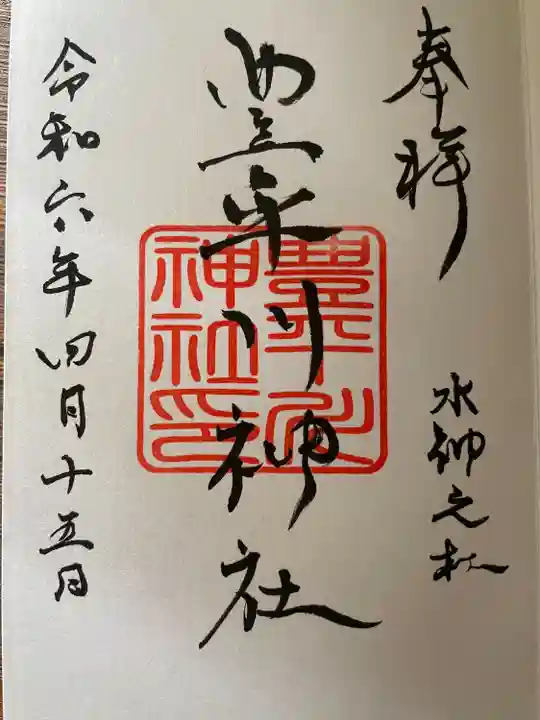 奉拝
水神之
豊平川神社
豊平川
神社印
令和六年四月十五日